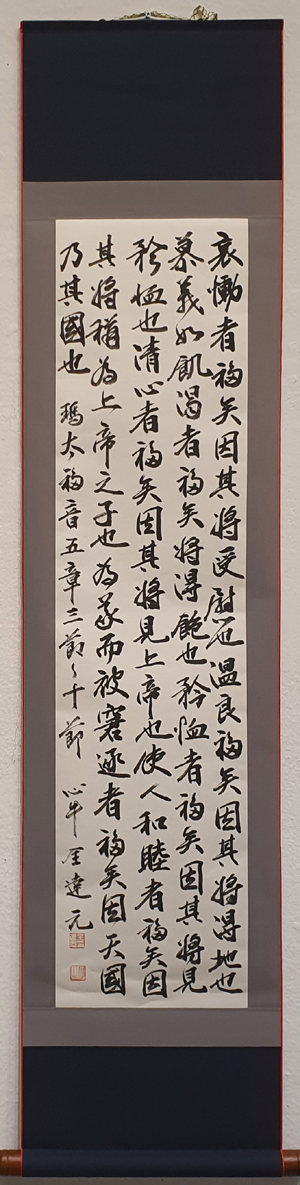 哀慟者福矣因其將受慰也溫良福矣因其將得地也
慕義如飢渴者福矣將得飽也矜恤者福矣因其將見
矜恤也清心者福矣因其將見上帝也使人和睦者福矣因
其將稱為上帝之子也為義而被窘逐者福矣因天國
乃其國也 瑪太福音五章三節~十節 心牛 金達元